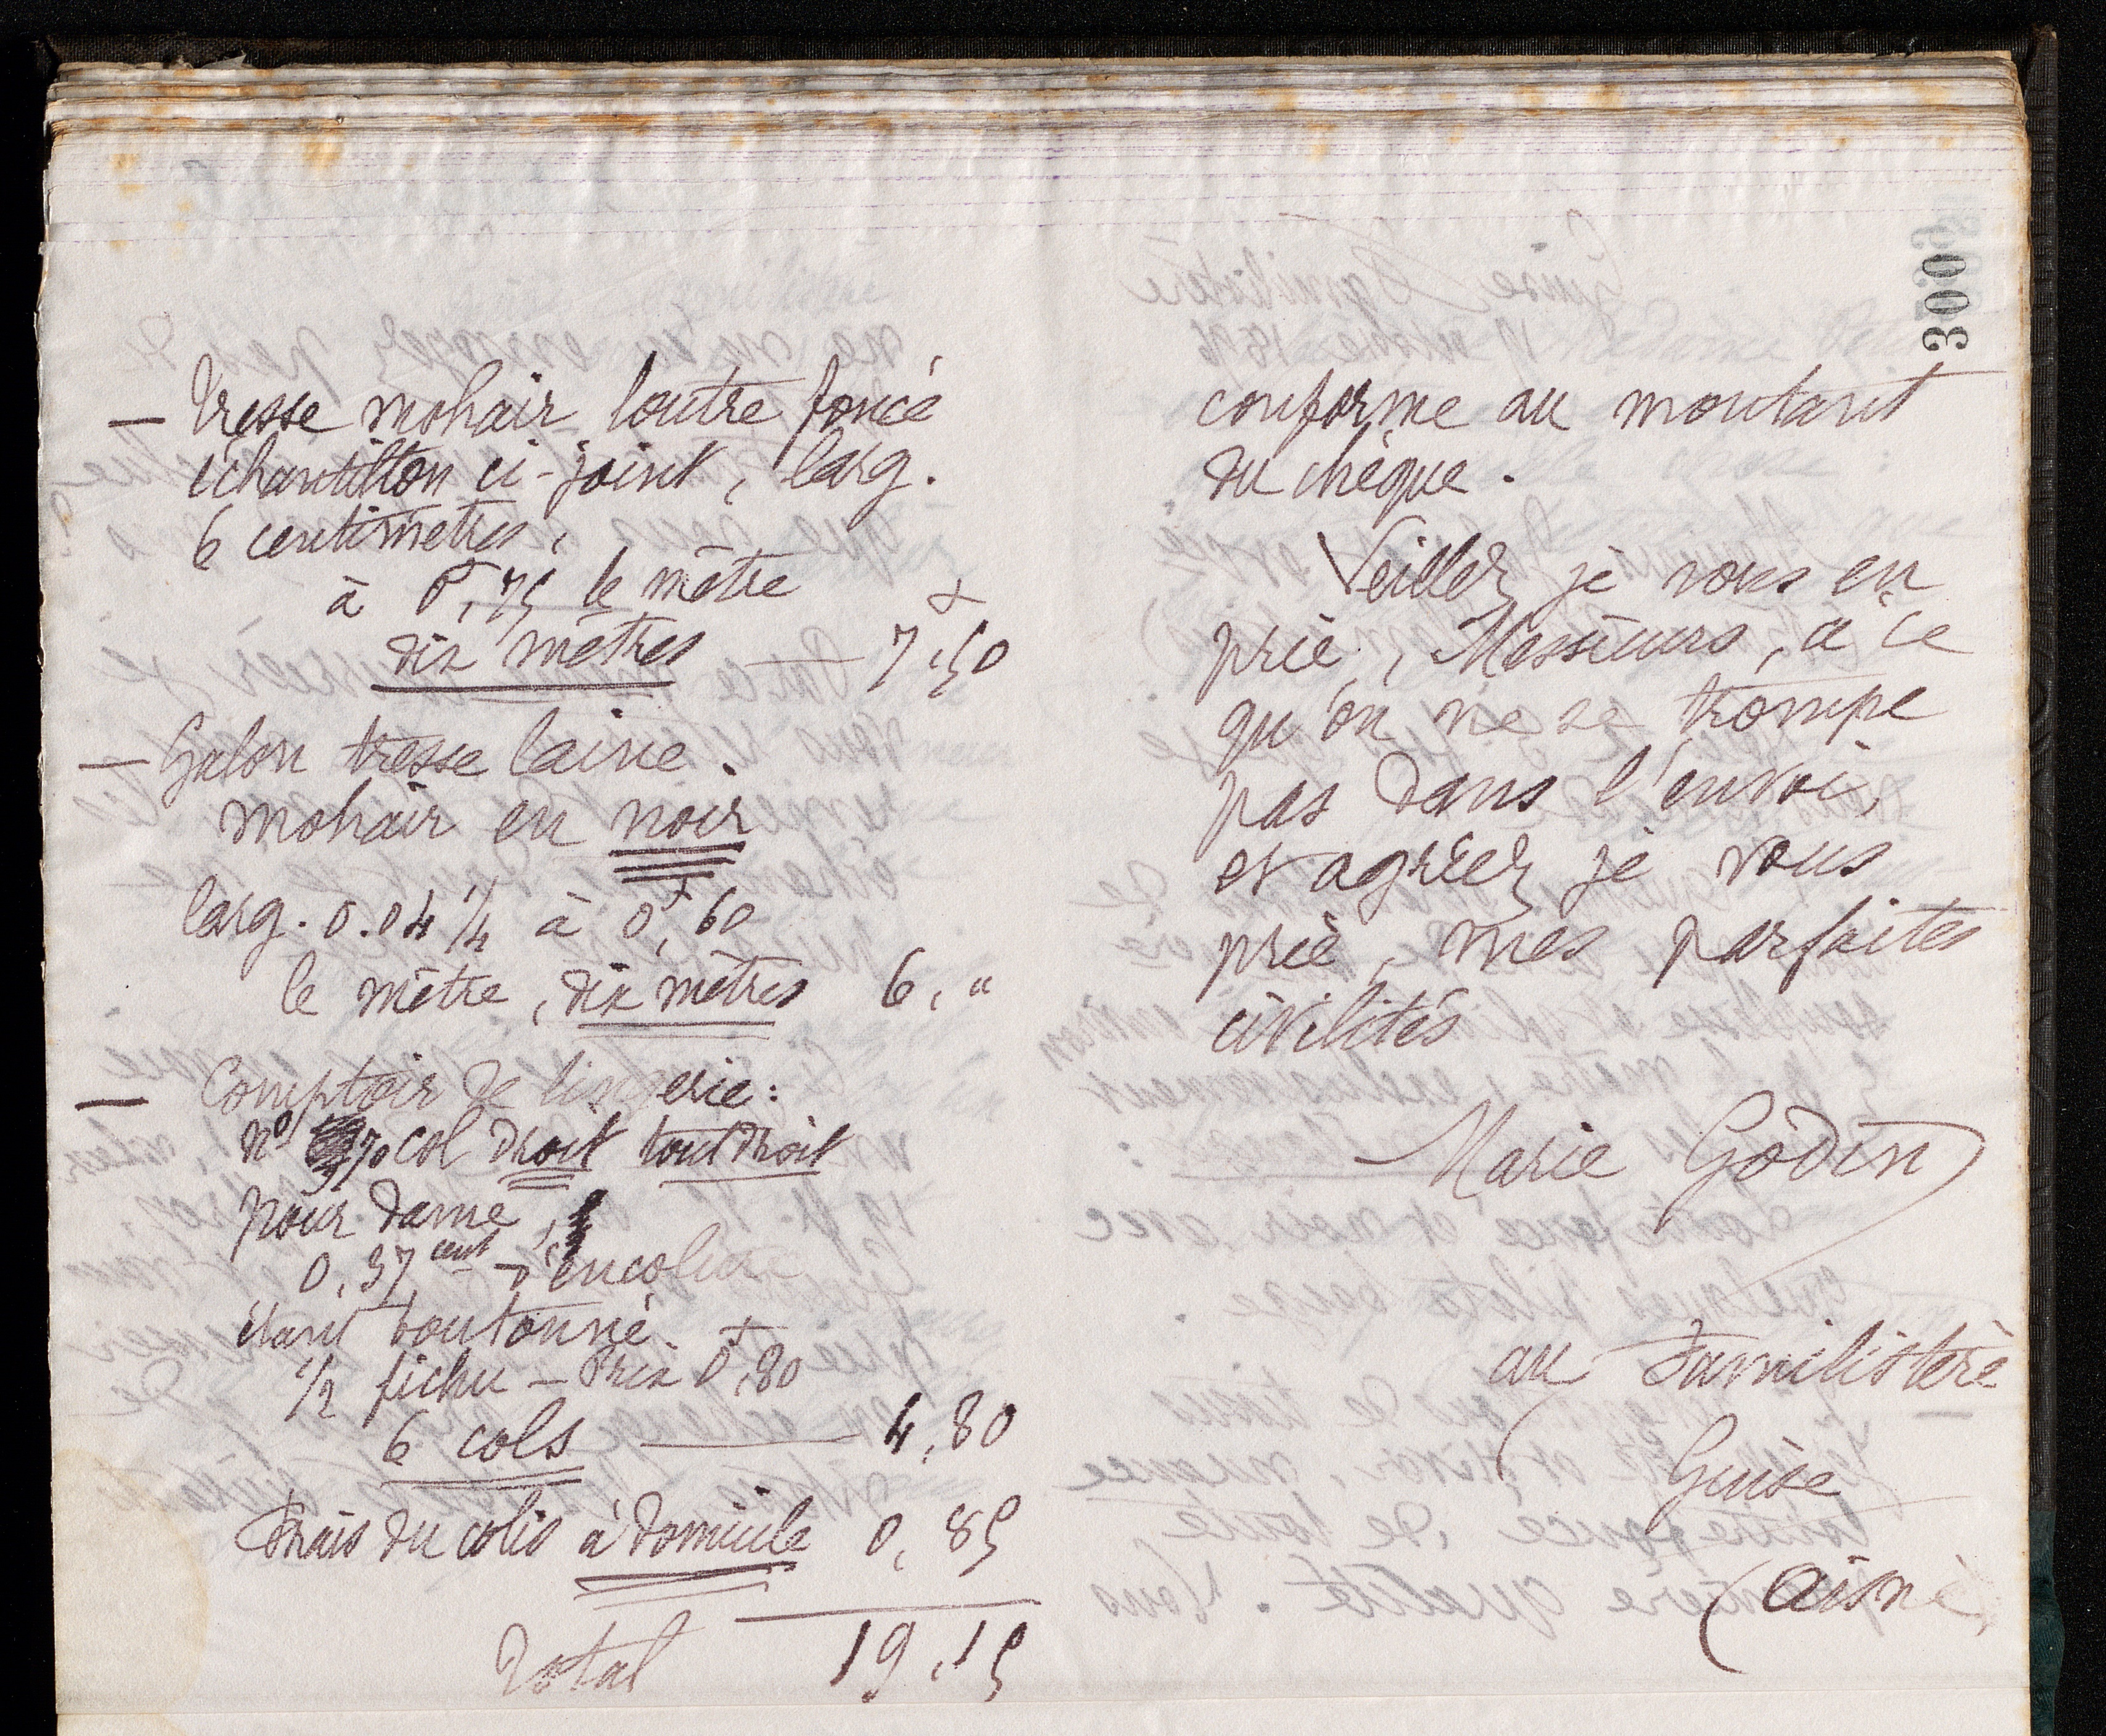 — Tresse mohair loutre foncé
échantillon ci-joint, larg.
6 centimètres,
à 0f,75 le mètre
dix mètres — 7f,50
— Galon tresse laine.
mohair en noir
larg. 0.04 1/4 à 0f,60
le mètre, dix mètres 6, "
— Comptoir de lingerie:
no 370 col droit tout droit
pour dame,
0,37 cent d'encolure
étant boutonné.
1/2 fichu — Prix 0f,80
6 cols — 4,80
Frais du colis à domicile 0,85
Total 19,15
300
conforme au montant
du chèque.
Veillez je vous en
prie, Messieurs, à ce
qu'on ne se trompe
pas dans l'envoi,
et agréez je vous
prie, mes parfaites
civilités
Marie Godin
au Familistère
Guise
(Aisne)